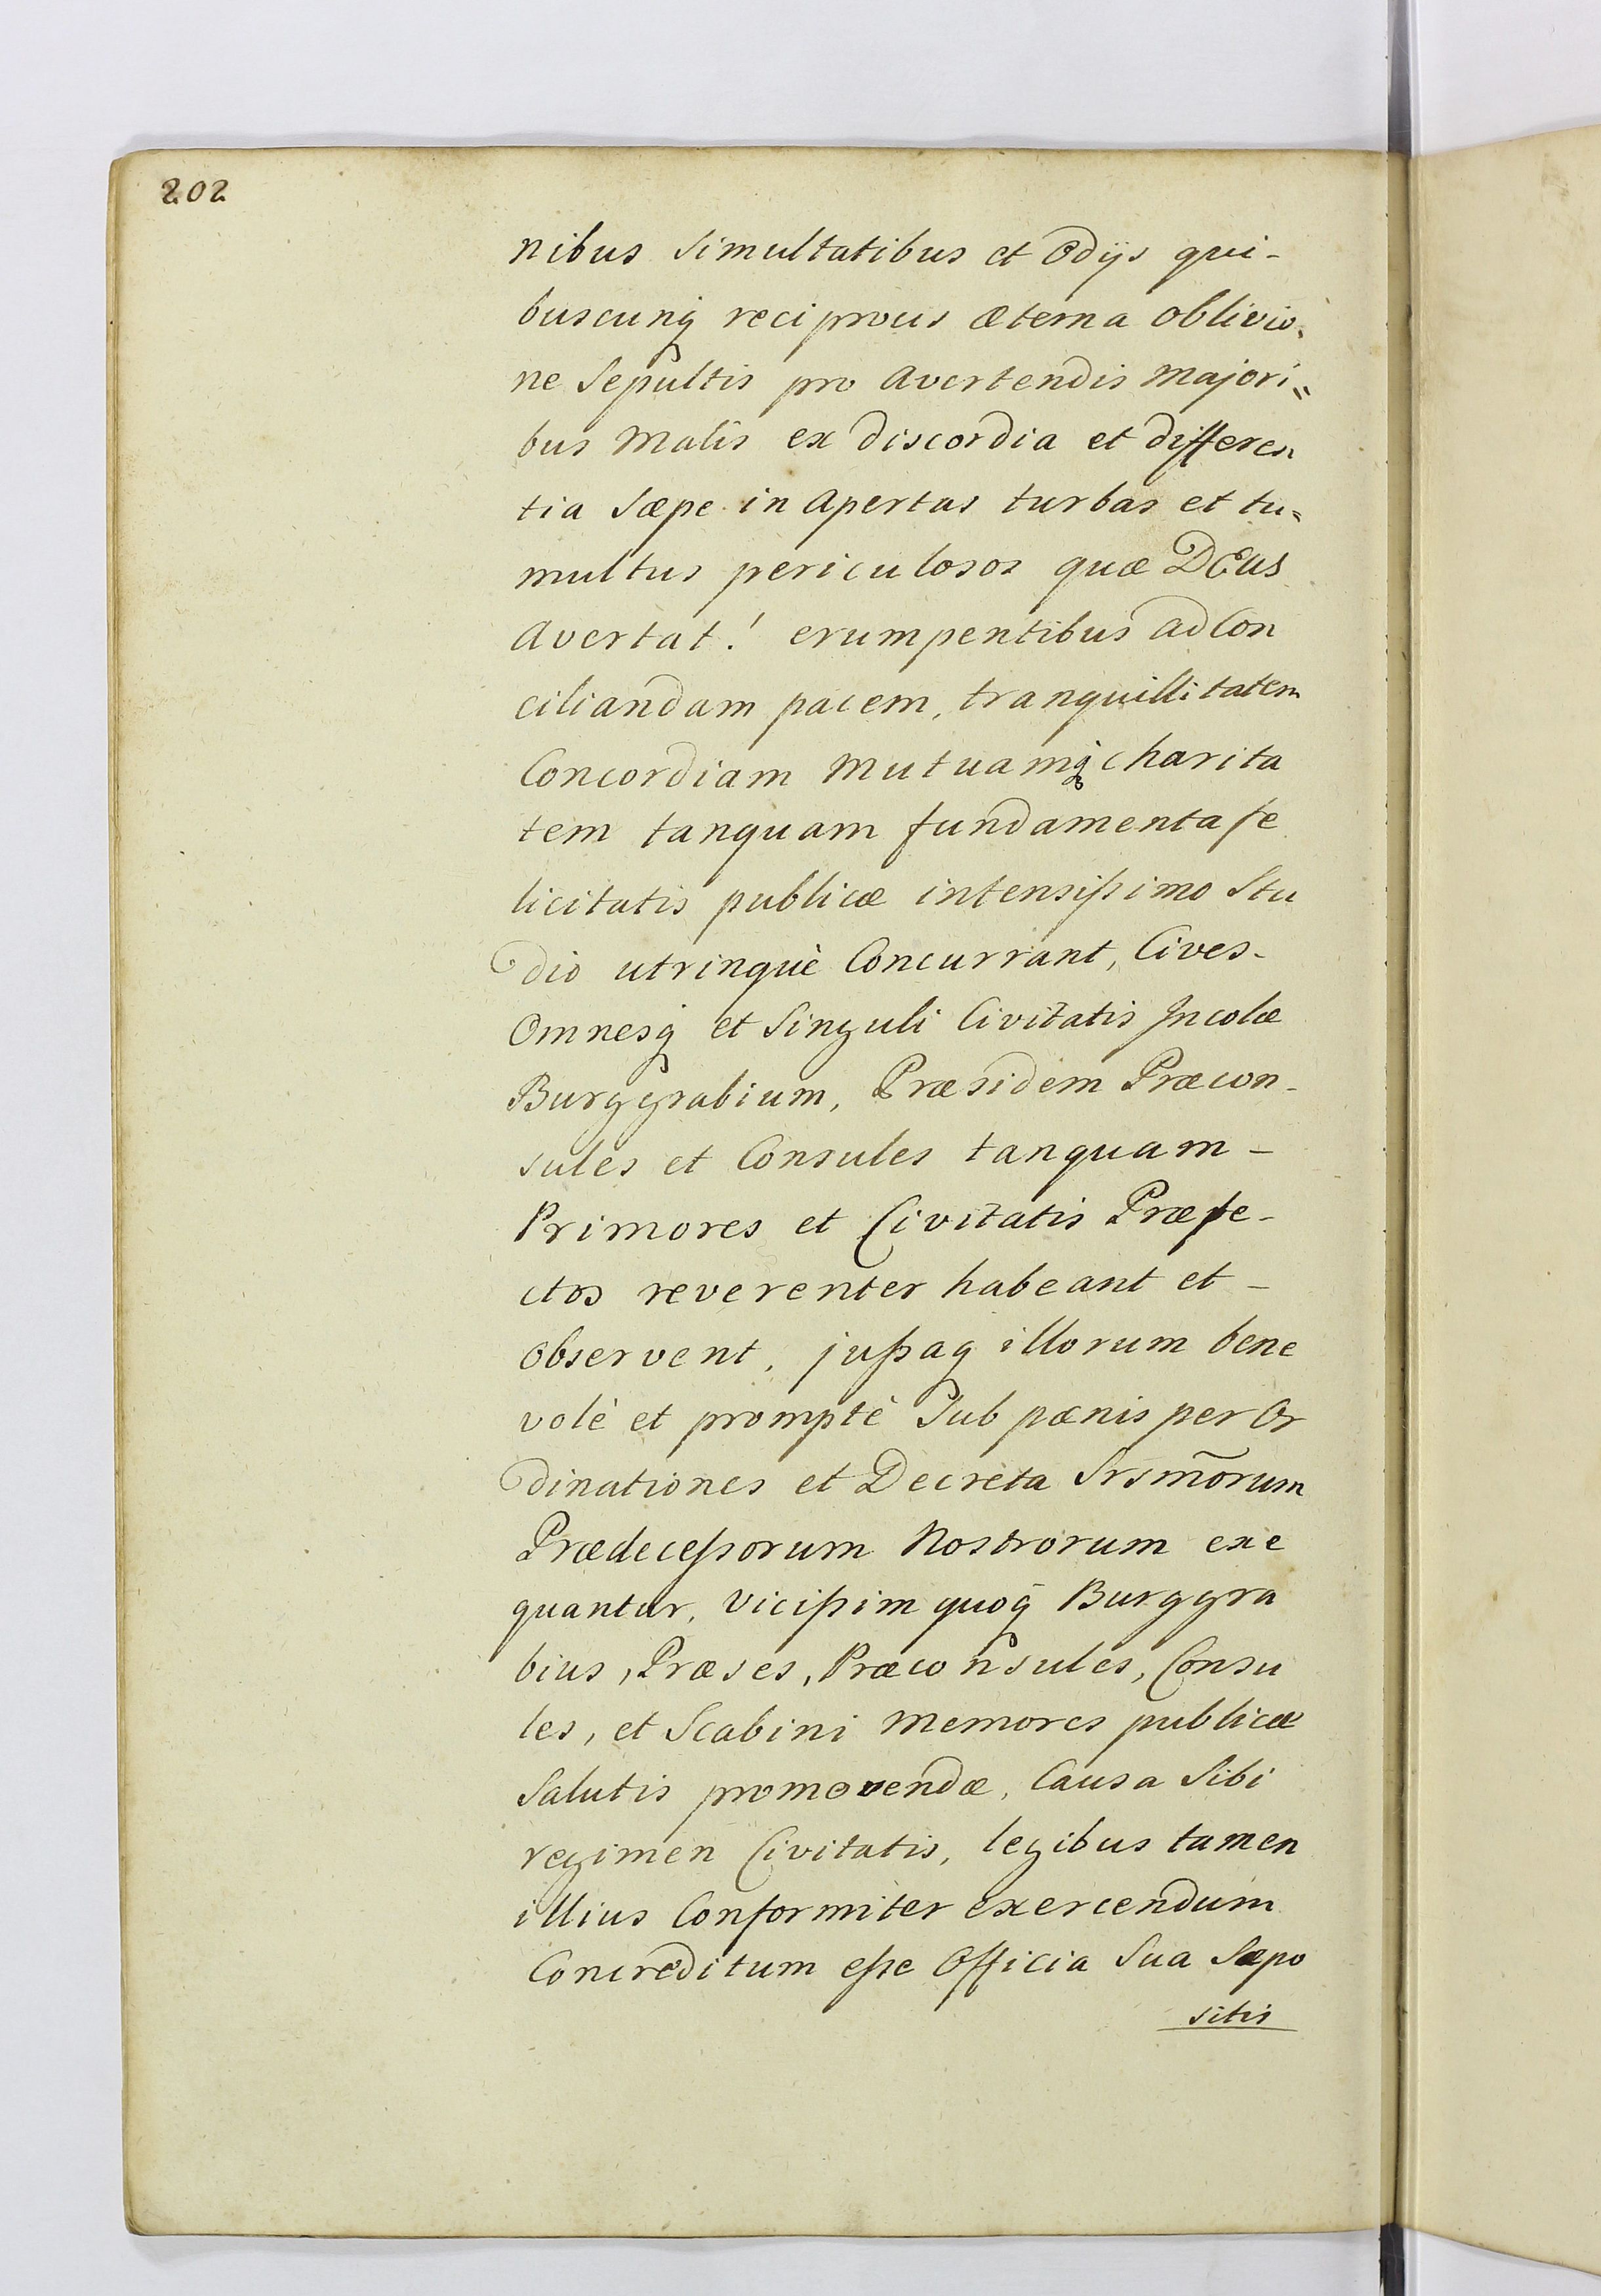 202
nibus simultatibus et Odijs qui-
buscunq̃ reciprocis æterna oblivio=
ne Sepultis pro avertendis majori=
bus Malis ex discordia et differen
tia Sæpe in apertas turbas et tu=
multus periculosos quæ DEus
Avertat! erumpentibus ad Con
ciliandam pacem, tranquillitatem
Concordiam Mutuamq̃ charita
tem tanquam fundamenta fe
licitatis publicæ intensißimo Stu
dio utrinquè Concurrant, Cives-
Omnesq̃ et Singuli Civitatis Incolæ
Burggrabium, Præsidem Præcon-
sules et Consules tanquam-
Primores et Civitatis Præfe-
ctos reverenter habeant et-
Observent, jußaq̃ illorum bene
volè et promptè Sub pænis per Or
dinationes et Decreta Srsm̃orum
Prædeceßorum Nostrorum exe
quantur, vicißim quoq̃ Burggra
bius, Præses, Præconsules, Consu
les, et Scabini Memores publicæ
Salutis promovendæ, Causa Sibi
regimen Civitatis, legibus tamen
illius Conformiter exercendum
Concreditum eße Officia Sua Sæpo
sitis